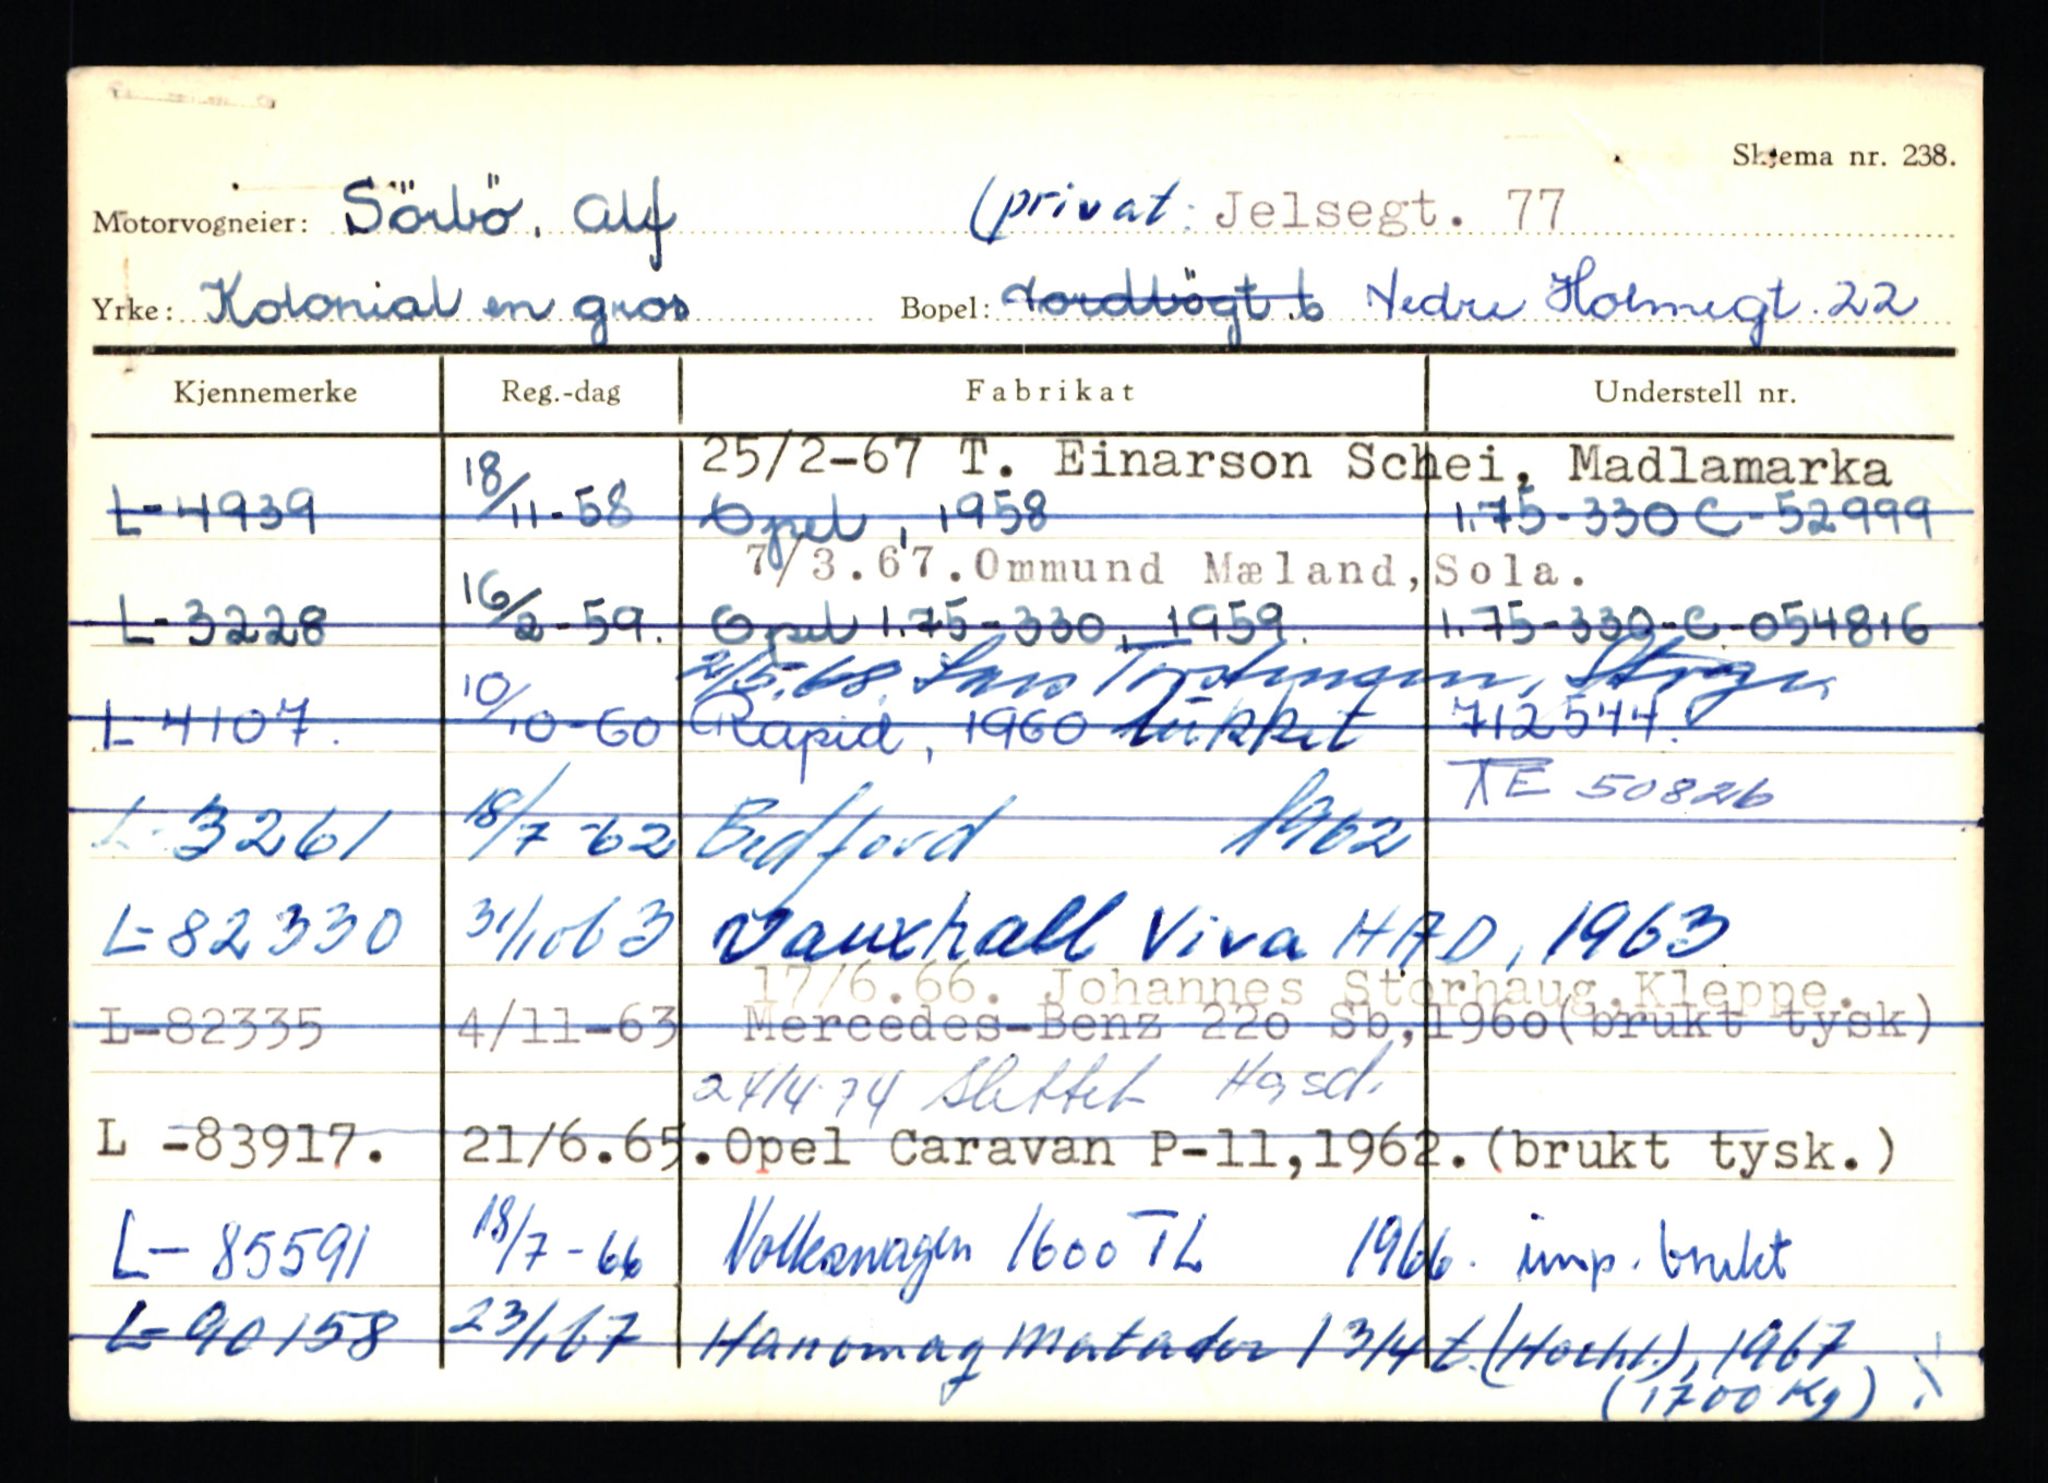 Skjema nr. 238.
Motorvogneier: Sörbö, Alf (privat: Jelsegt. 77
Yrke: Kolonial en gros Bopel: Nordbögt. 6 Nedre Holmegt. 22
Kjennemerke Reg.-dag Fabrikat Understell nr.
25/2-67 T. Einarson Schei, Madlamarka
L-4939 18/11-58 Opel, 1958 1.75-330 C-52999
7/3.67.Ommund Mæland,Sola.
L-3228 16/2-59. Opel 1.75-330, 1959. 1.75-330-C-054816
2/5.68. Lars
L-4107. 10/10-60 Rapid, 1960 lukket 712544.
TE 50826
L-3261 18/7-62 Bedford 1962
L-82330 31/10 63 Vauxhall Viva HAD, 1963
17/6.66. Johannes Storhaug,Kleppe.
L-82335 4/11-63 Mercedes-Benz 220 Sb,1960(brukt tysk)
24/4-74 Slettet
L -83917. 21/6.65. Opel Caravan P-11,1962.(brukt tysk.)
L-85591 18/7-66 Volkswagen 1600 TL 1966. imp. brukt
L-90158 23/1 67 Hanomag Matador 1 3/4 t. (Hochl.), 1967
(1700 Kg)